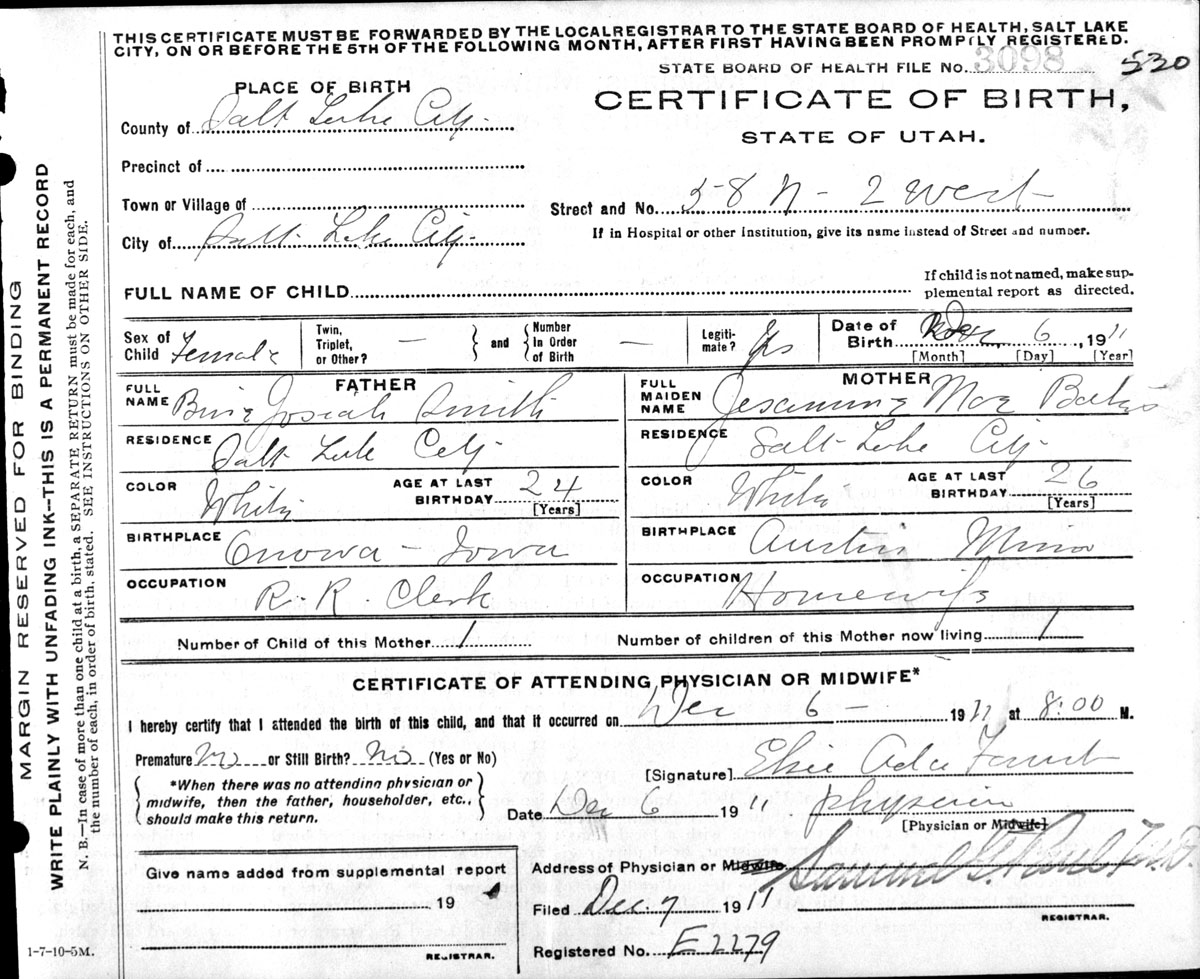 THIS CERTIFICATE MUST BE FORWARDED BY THE LOCAL REGISTRAR TO THE STATE BOARD OF HEALTH, SALT LAKE
CITY, ON OR BEFORE THE 5TH OF THE FOLLOWING MONTH, AFTER FIRST HAVING BEEN PROMPTLY REGISTERED.
STATE BOARD OF HEALTH FILE No. 3098 530
PLACE OF BIRTH
CERTIFICATE OF BIRTH,
STATE OF UTAH.
County of Salt Lake City
Precinct of
Town or Village of
Street and No. 58 N - 2 West
City of Salt Lake City
If in Hospital or other Institution, give its name instead of Street and number.
FULL NAME OF CHILD
If child is not named, make sup-
plemental report as directed.
Sex of Child Female
Twin, Triplet, or Other? —
and
Number In Order of Birth —
Legiti-mate? Yes
Date of Birth Dec 6, 1911
[Month] [Day] [Year]
FATHER
FULL NAME Josiah Smith
MOTHER
FULL MAIDEN NAME Mae
RESIDENCE Salt Lake City
RESIDENCE Salt Lake City
COLOR White
AGE AT LAST BIRTHDAY 24
[Years]
COLOR White
AGE AT LAST BIRTHDAY 26
[Years]
BIRTHPLACE Onowa - Iowa
BIRTHPLACE Austin Minn
OCCUPATION R. R. Clerk
OCCUPATION Housewife
Number of Child of this Mother 1
Number of children of this Mother now living 1
CERTIFICATE OF ATTENDING PHYSICIAN OR MIDWIFE*
I hereby certify that I attended the birth of this child, and that it occurred on Dec 6 - 1911 at 8:00 M.
Premature No or Still Birth? No (Yes or No)
[Signature] Elsie Ada Faust
*When there was no attending physician or
midwife, then the father, householder, etc.,
should make this return.
Date Dec 6 1911 Physician
[Physician or Midwife]
Give name added from supplemental report
19
REGISTRAR.
Address of Physician or Midwife
Filed Dec 7 1911
REGISTRAR.
Registered No. E2279
1-7-10-5M.
MARGIN RESERVED FOR BINDING
WRITE PLAINLY WITH UNFADING INK—THIS IS A PERMANENT RECORD
N. B.—In case of more than one child at a birth, a SEPARATE RETURN must be made for each, and
the number of each, in order of birth, stated. SEE INSTRUCTIONS ON OTHER SIDE.